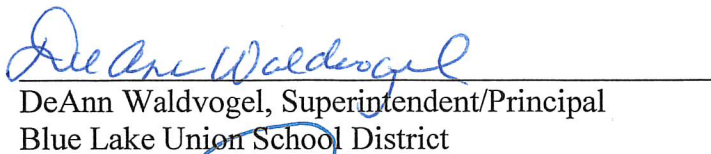 DeAnn Waldvogel
DeAnn Waldvogel, Superintendent/Principal
Blue Lake Union School District